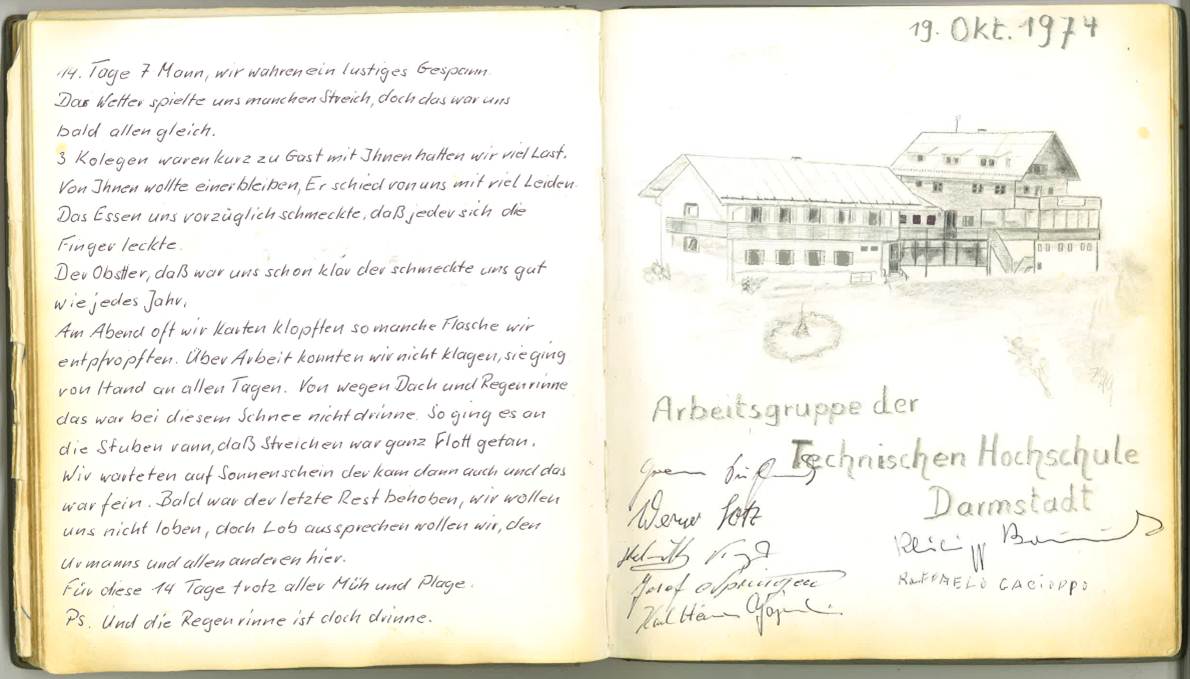 14. Tage 7 Mann, wir wahren ein lustiges Gespann.
Das Wetter spielte uns manchen Streich, doch das war uns
bald allen gleich.
3 Kolegen waren kurz zu Gast mit Ihnen hatten wir viel Last.
Von Ihnen wollte einer bleiben, Er schied von uns mit viel Leiden.
Das Essen uns vorzüglich schmeckte, daß jeder sich die
Finger leckte.
Der Obstler, daß war uns schon klar der schmeckte uns gut
wie jedes Jahr.
Am Abend oft wir Karten klopften so manche Flasche wir
entpfropften. Über Arbeit konnten wir nicht klagen, sie ging
von Hand an allen Tagen. Von wegen Dach und Regenrinne
das war bei diesem Schnee nicht drinne. So ging es an
die Stuben rann, daß Streichen war ganz Flott getan.
Wir warteten auf Sonnenschein der kam dann auch und das
war fein. Bald war der letzte Rest behoben, wir wollen
uns nicht loben, doch Lob aussprechen wollen wir, den
Urmanns und allen anderen hier.
Für diese 14 Tage trotz aller Müh und Plage.
Ps. Und die Regenrinne ist doch drinne.
19. Okt. 1974
Arbeitsgruppe der
Technischen Hochschule
Darmstadt
Werner Lotz
Josef
Karl Heinz
RAFFAELO CACIOPPO